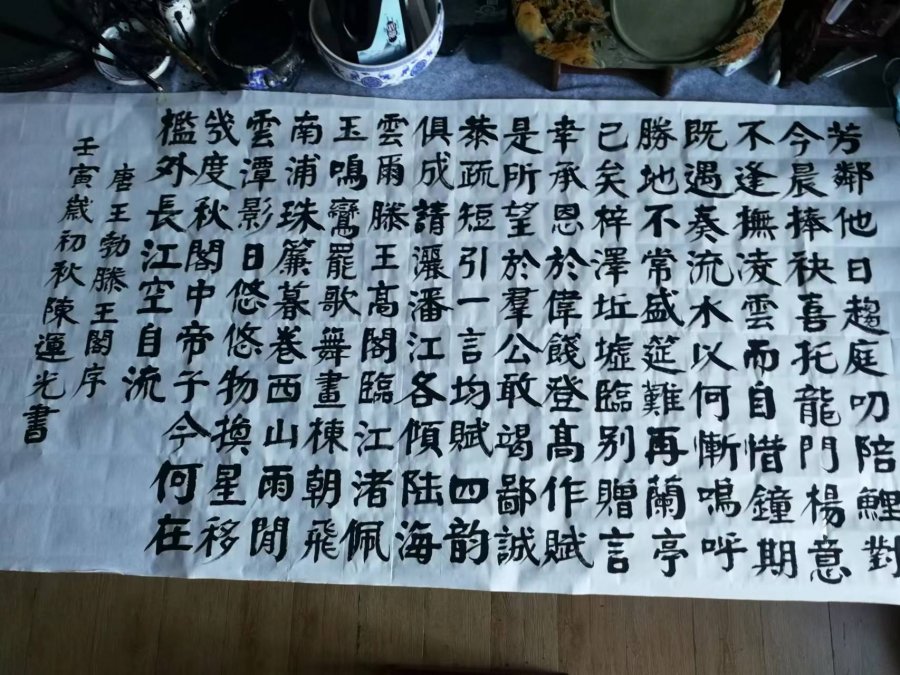 芳鄰他日趨庭叨陪鯉對
今晨捧袂喜托龍門楊意
不逢撫凌雲而自惜鐘期
既遇奏流水以何慚鳴呼
勝地不常盛筵難再蘭亭
已矣梓澤坵墟臨别贈言
幸承恩於偉餞登高作賦
是所望於羣公敢竭鄙誠
恭疏短引一言均賦四韵
俱成請灑潘江各傾陸海
雲爾滕王高閣臨江渚佩
玉鳴鸞罷歌舞畫棟朝飛
南浦珠簾暮卷西山雨閒
雲潭影日悠悠物換星移
幾度秋閣中帝子今何在
檻外長江空自流
唐王勃滕王閣序
壬寅歲初秋陳運光書